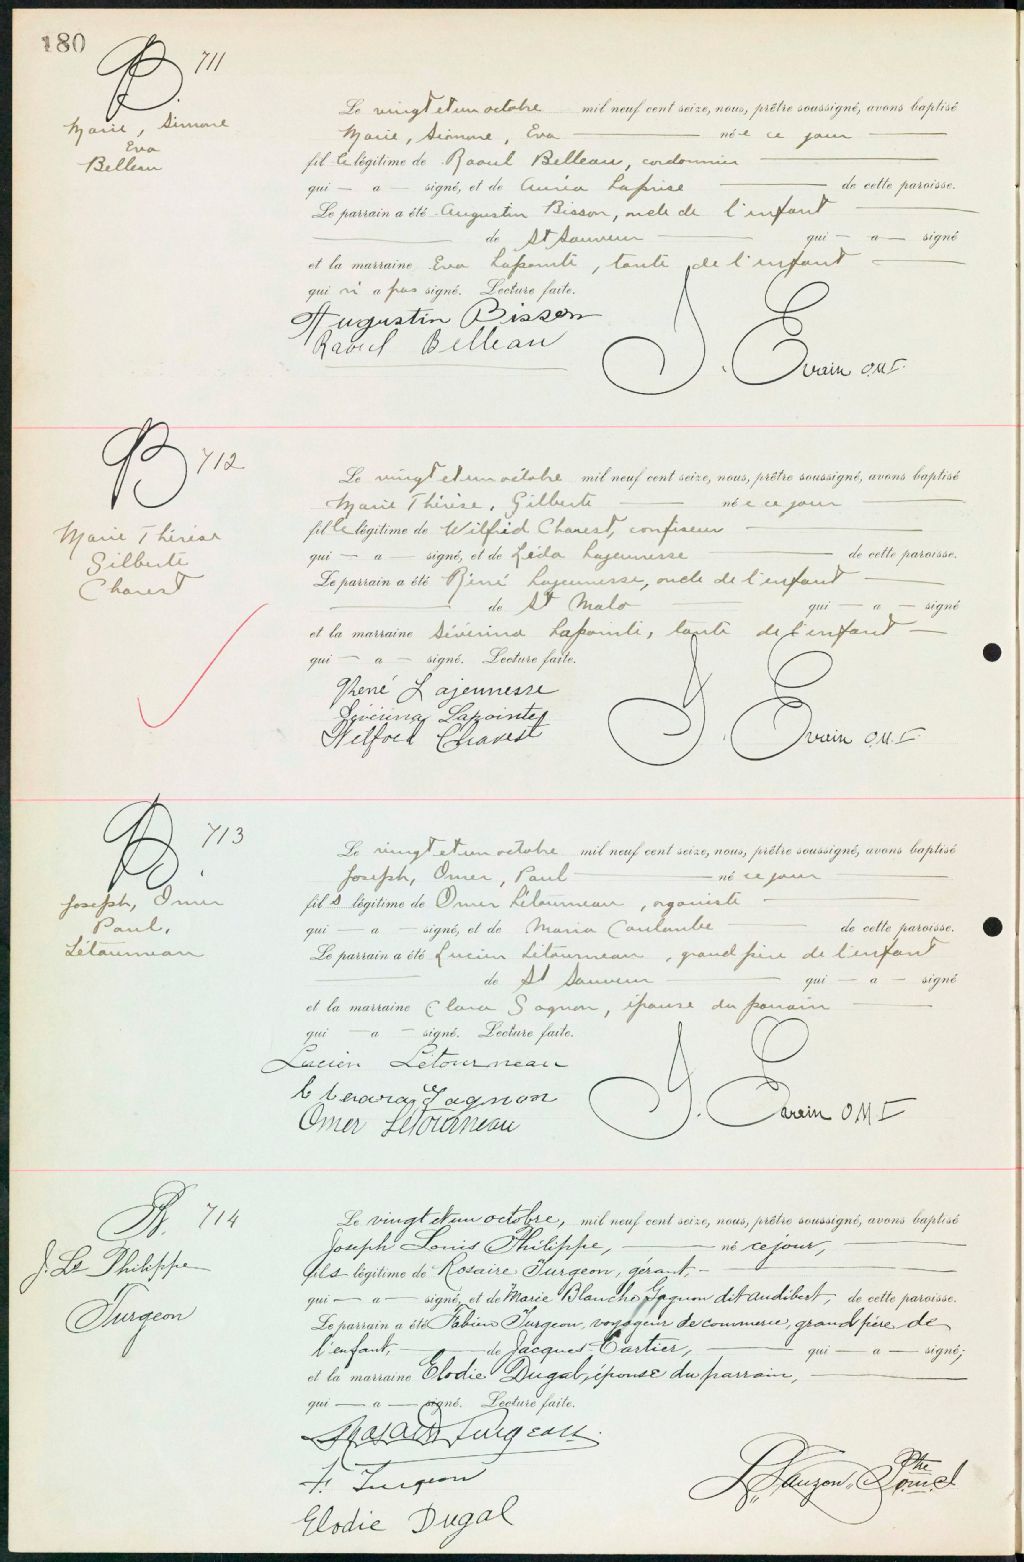 180
B. 711
Marie, Simone
Eva
Belleau
Le vingt et un octobre mil neuf cent seize, nous, prêtre soussigné, avons baptisé
Marie, Simone, Eva née ce jour
fille légitime de Raoul Belleau, cordonnier
qui — a — signé, et de Auréa Laprise de cette paroisse.
Le parrain a été Augustin Bisson, oncle de l'enfant
de St Sauveur qui — a — signé
et la marraine Eva Lapointe, tante de l'enfant
qui n'a pas signé. Lecture faite.
Augustin Bisson
Raoul Belleau
J. Evain O.M.I.
B 712
Marie Thérèse
Gilberte
Charest
Le vingt et un octobre mil neuf cent seize, nous, prêtre soussigné, avons baptisé
Marie Thérèse, Gilberte née ce jour
fille légitime de Wilfrid Charest, confiseur
qui — a — signé, et de Léda Lajeunesse de cette paroisse.
Le parrain a été Réné Lajeunesse, oncle de l'enfant
de St Malo qui — a — signé
et la marraine Sévérina Lapointe, tante de l'enfant
qui — a — signé. Lecture faite.
René Lajeunesse
Sévérina Lapointe
Wilfrid Charest
J. Evain O.M.I.
B. 713
Joseph, Omer
Paul,
Létourneau
Le vingt et un octobre mil neuf cent seize, nous, prêtre soussigné, avons baptisé
Joseph, Omer, Paul né ce jour
fils légitime de Omer Létourneau, organiste
qui — a — signé, et de Maria Coulombe de cette paroisse.
Le parrain a été Lucien Létourneau, grand père de l'enfant
de St Sauveur qui — a — signé
et la marraine Clara Gagnon, épouse du parrain
qui — a — signé. Lecture faite.
Lucien Létourneau
Gagnon
Omer Létourneau
J. Evain O.M.I.
B. 714
J. Ls Philippe
Turgeon
Le vingt et un octobre, mil neuf cent seize, nous, prêtre soussigné, avons baptisé
Joseph Louis Philippe, né ce jour,
fils légitime de Rosaire Turgeon, gérant,
qui — a — signé, et de Marie Blanche Gagnon dit Audibert, de cette paroisse.
Le parrain a été Fabien Turgeon, voyageur de commerce, grand père de
l'enfant, de Jacques Cartier, qui — a — signé;
et la marraine Elodie Dugal, épouse du parrain,
qui — a — signé. Lecture faite.
Turgeon
F. Turgeon
Elodie Dugal
Lauzon Ptre o.m.i